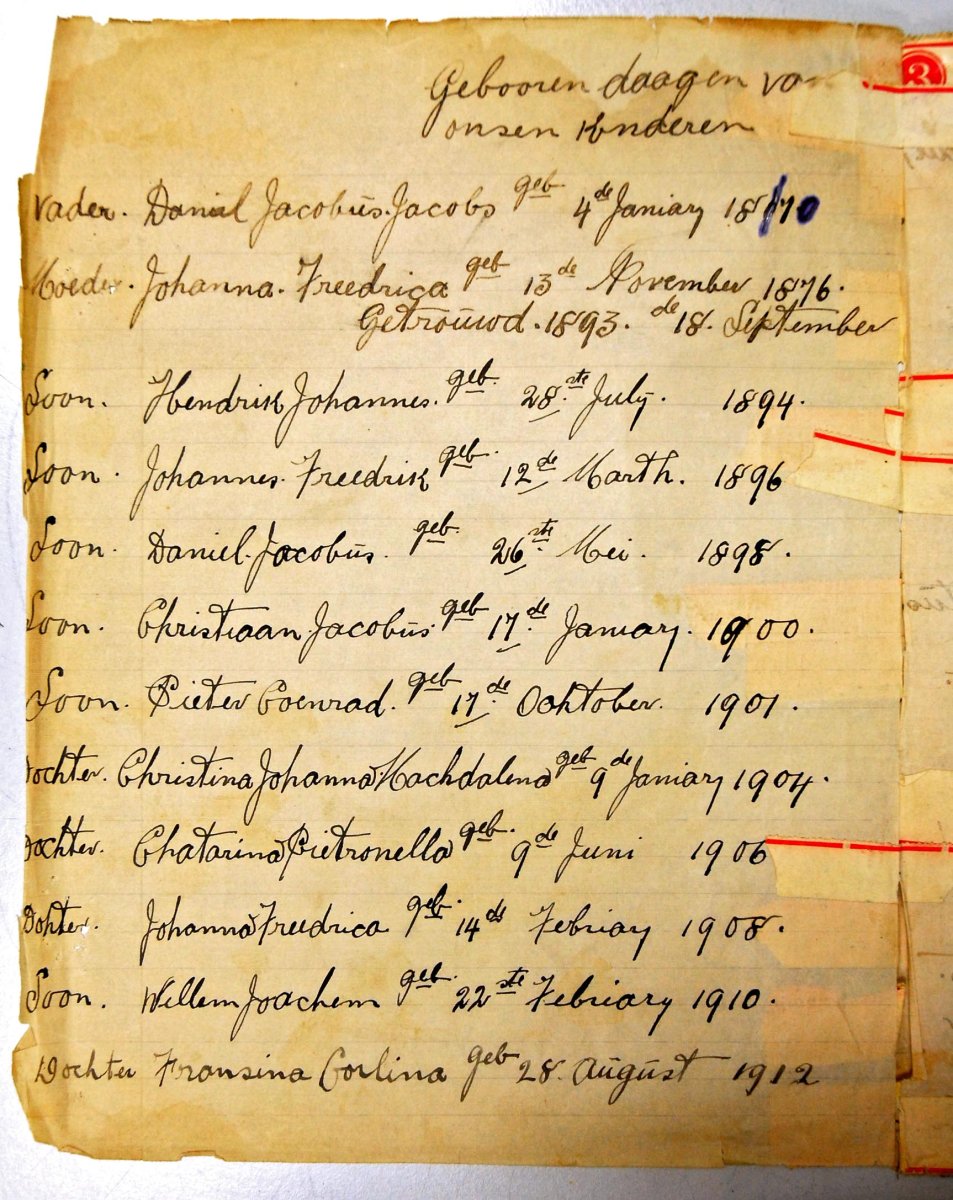 Gebooren daagen van
onsen Kinderen
3
Vader. Daniel Jacobus. Jacobs geb 4de Janiary 1870
Moeder. Johanna. Freedrica geb 13de November 1876.
Getrouwd. 1893. de 18. September
Soon. Hendrik Johannes. geb. 28.ste July. 1894.
Soon. Johannes. Freedrik geb. 12de Marth. 1896
Soon. Daniel. Jacobus. geb. 26ste. Mei. 1898.
Soon. Christiaan. Jacobus. geb 17.de Janiary. 1900.
Soon. Pieter Coenrad. geb 17.de Ocktober. 1901.
Dochter. Christina Johanna Machdalena geb 9de Janiary 1904.
Dochter. Chatarina Pietronella geb. 9de Juni 1906
Dohter. Johanna Freedrica geb. 14de Febriay 1908.
Soon. Willem Joachem geb. 22ste February 1910.
Dochter Fransina Corlina geb 28. August 1912